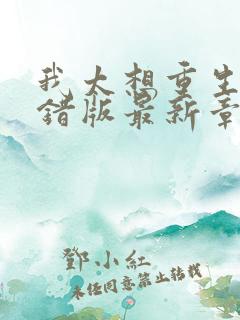 我太想重生
错版最新章
鄧小紅
未经同意禁止转载